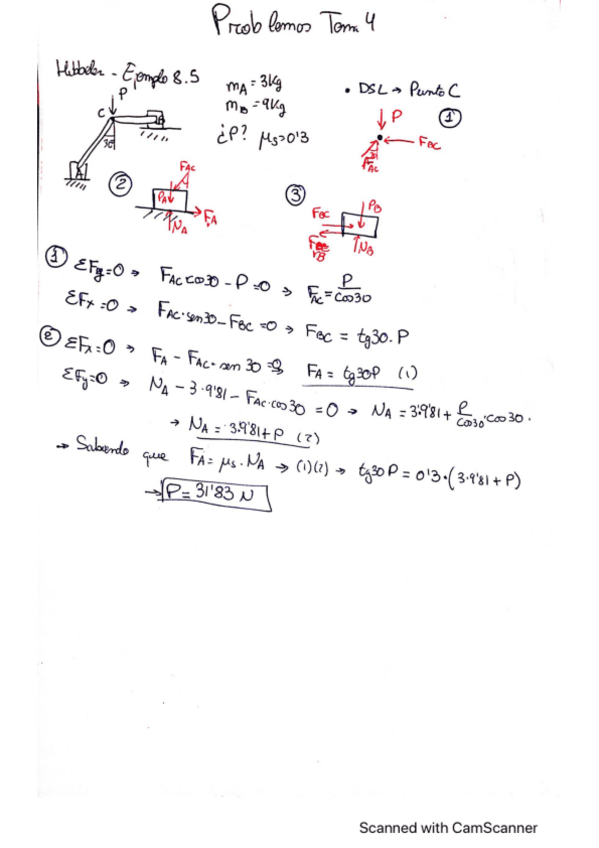 Problemas Tema 4
Hibbeler - Ejemplo 8.5
P
C
B
30
A
mA = 3Kg
mB = 9Kg
¿P? μs=0'3
• DSL → Punto C
P
FBC
FAC
①
②
FAC
PA
FA
NA
③
PB
FBC
FB
NB
① ΣFy=0 → FAC cos30 - P = 0 → FAC = P/cos30
ΣFx = 0 → FAC·sen30 - FBC = 0 → FBC = tg30·P
② ΣFx=0 → FA - FAC·sen 30 = 0 → FA = tg30P (1)
ΣFy=0 → NA - 3·9'81 - FAC·cos30 = 0 → NA = 3·9'81 + P/cos30·cos30.
→ NA = 3·9'81 + P (2)
→ Sabiendo que FA = μs·NA → (1)(2) → tg30P = 0'3·(3·9'81 + P)
→ P = 31'83 N
Scanned with CamScanner